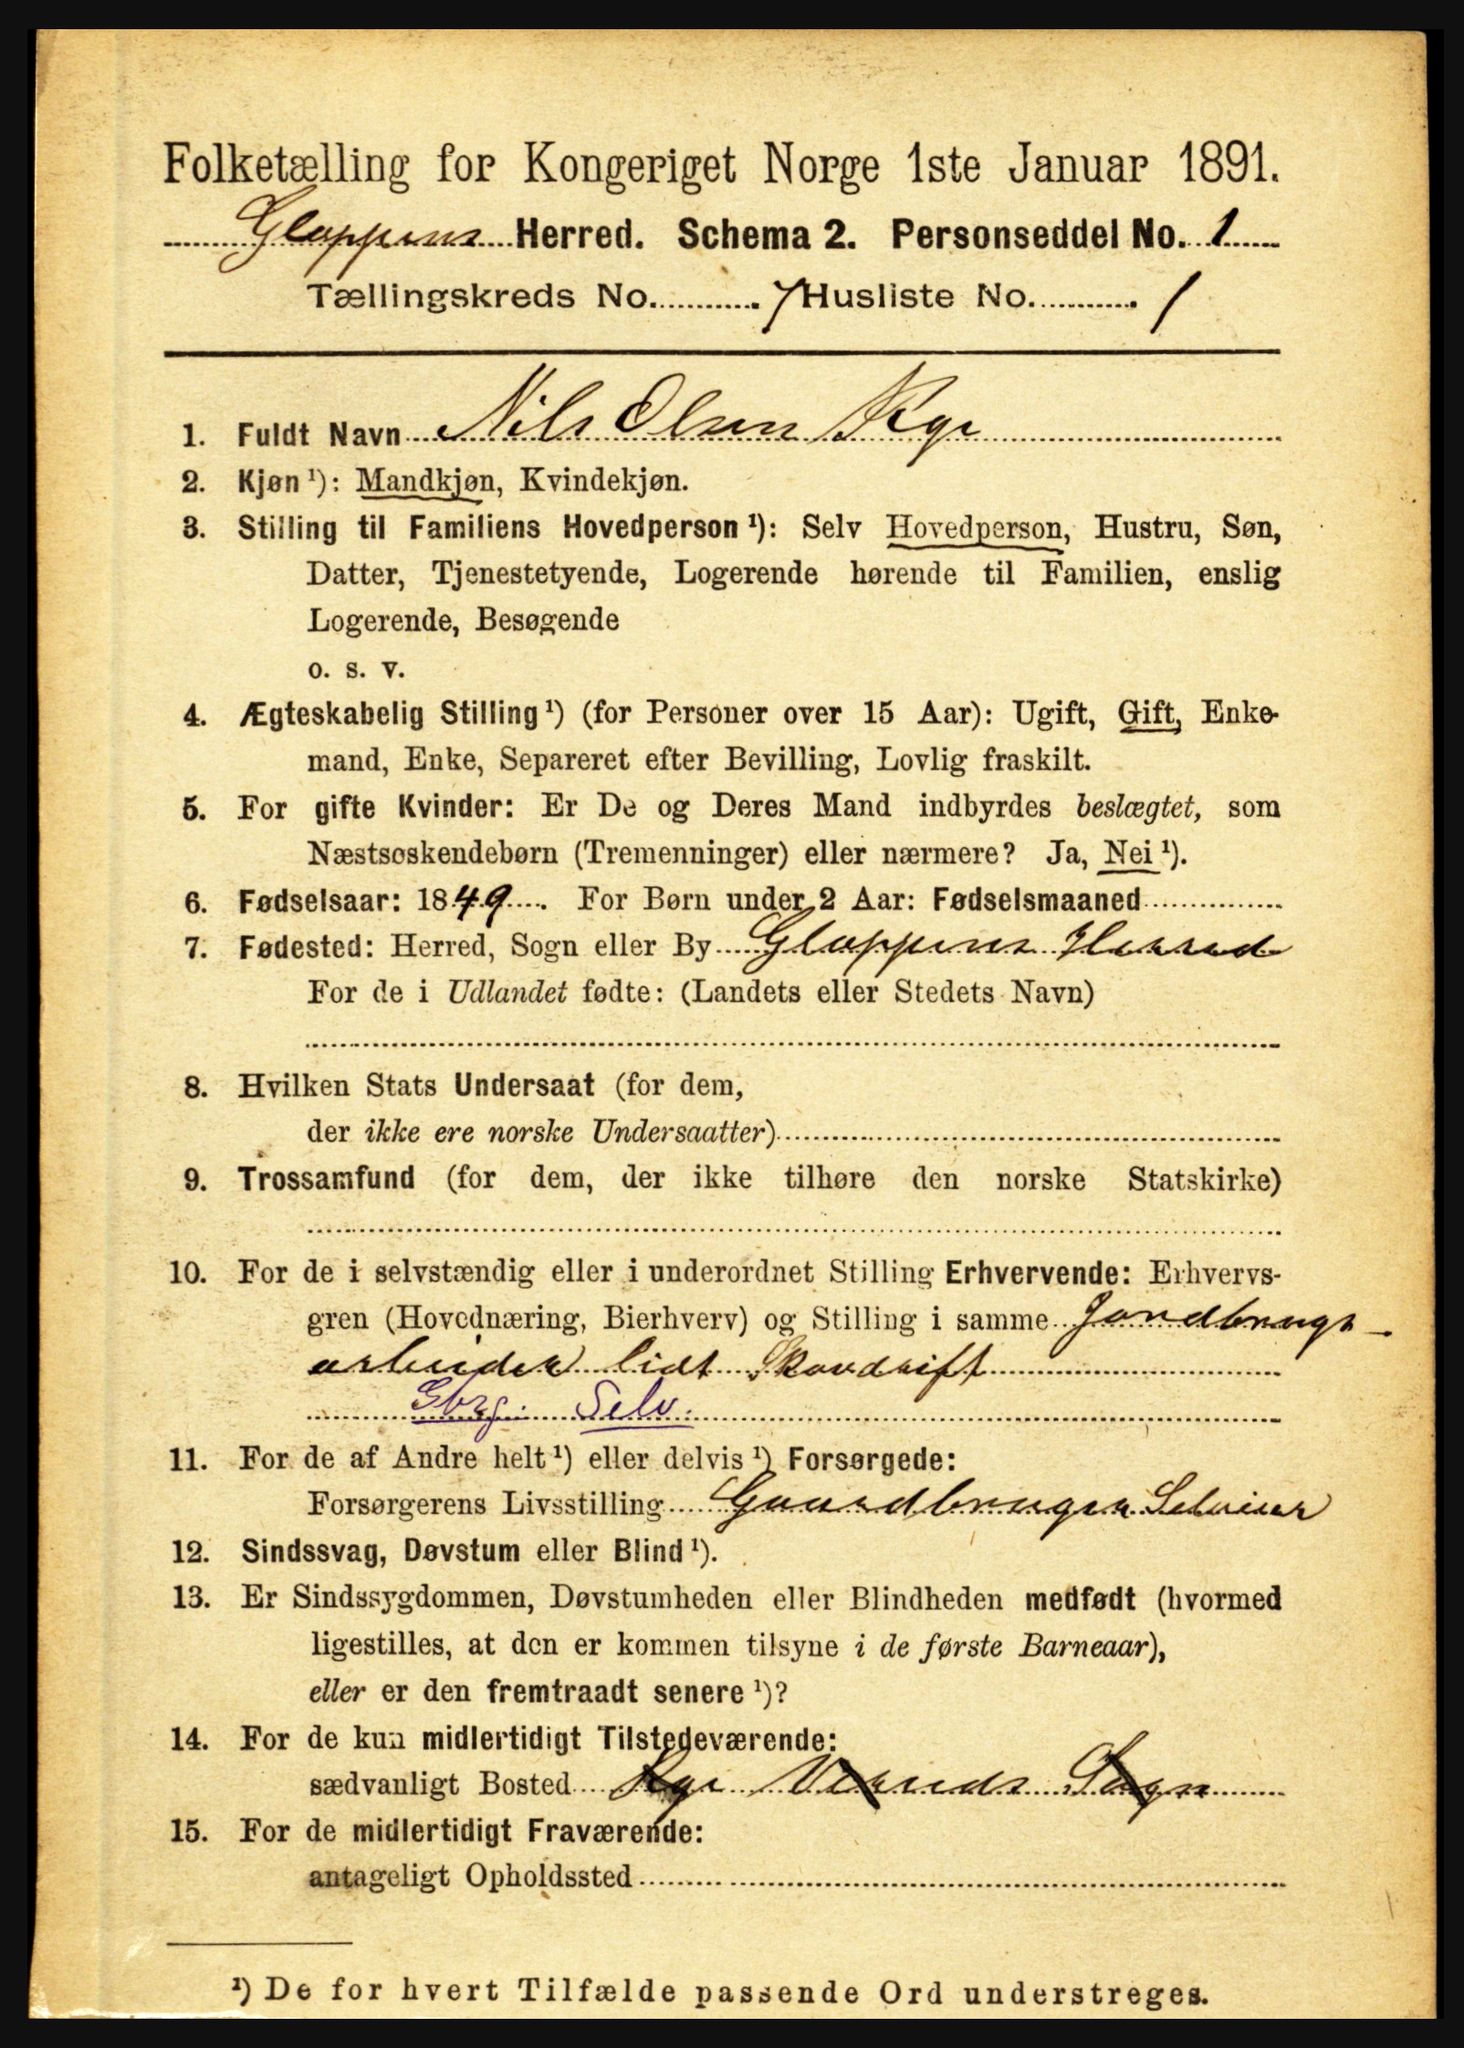 Folketælling for Kongeriget Norge 1ste Januar 1891.
Gloppens Herred. Schema 2. Personseddel No. 1
Tællingskreds No. 7 Husliste No. 1
1. Fuldt Navn Nils Olsen Ryg
2. Kjøn¹): Mandkjøn, Kvindekjøn.
3. Stilling til Familiens Hovedperson¹): Selv Hovedperson, Hustru, Søn,
Datter, Tjenestetyende, Logerende hørende til Familien, enslig
Logerende, Besøgende
o. s. v.
4. Ægteskabelig Stilling¹) (for Personer over 15 Aar): Ugift, Gift, Enke-
mand, Enke, Separeret efter Bevilling, Lovlig fraskilt.
5. For gifte Kvinder: Er De og Deres Mand indbyrdes beslægtet, som
Næstsøskendebørn (Tremenninger) eller nærmere? Ja, Nei¹).
6. Fødselsaar: 1849. For Børn under 2 Aar: Fødselsmaaned
7. Fødested: Herred, Sogn eller By Gloppens Herred
For de i Udlandet fødte: (Landets eller Stedets Navn)
8. Hvilken Stats Undersaat (for dem,
der ikke ere norske Undersaatter)
9. Trossamfund (for dem, der ikke tilhøre den norske Statskirke)
10. For de i selvstændig eller i underordnet Stilling Erhvervende: Erhvervs-
gren (Hovednæring, Bierhverv) og Stilling i samme Jordbrugs-
arbeider lidt Skovdrift
Gbrg. Selv.
11. For de af Andre helt¹) eller delvis¹) Forsørgede:
Forsørgerens Livsstilling Gaardbruger Seleier
12. Sindssvag, Døvstum eller Blind¹).
13. Er Sindssygdommen, Døvstumheden eller Blindheden medfødt (hvormed
ligestilles, at den er kommen tilsyne i de første Barneaar),
eller er den fremtraadt senere¹)?
14. For de kun midlertidigt Tilstedeværende:
sædvanligt Bosted Sogn
15. For de midlertidigt Fraværende:
antageligt Opholdssted
¹) De for hvert Tilfælde passende Ord understreges.